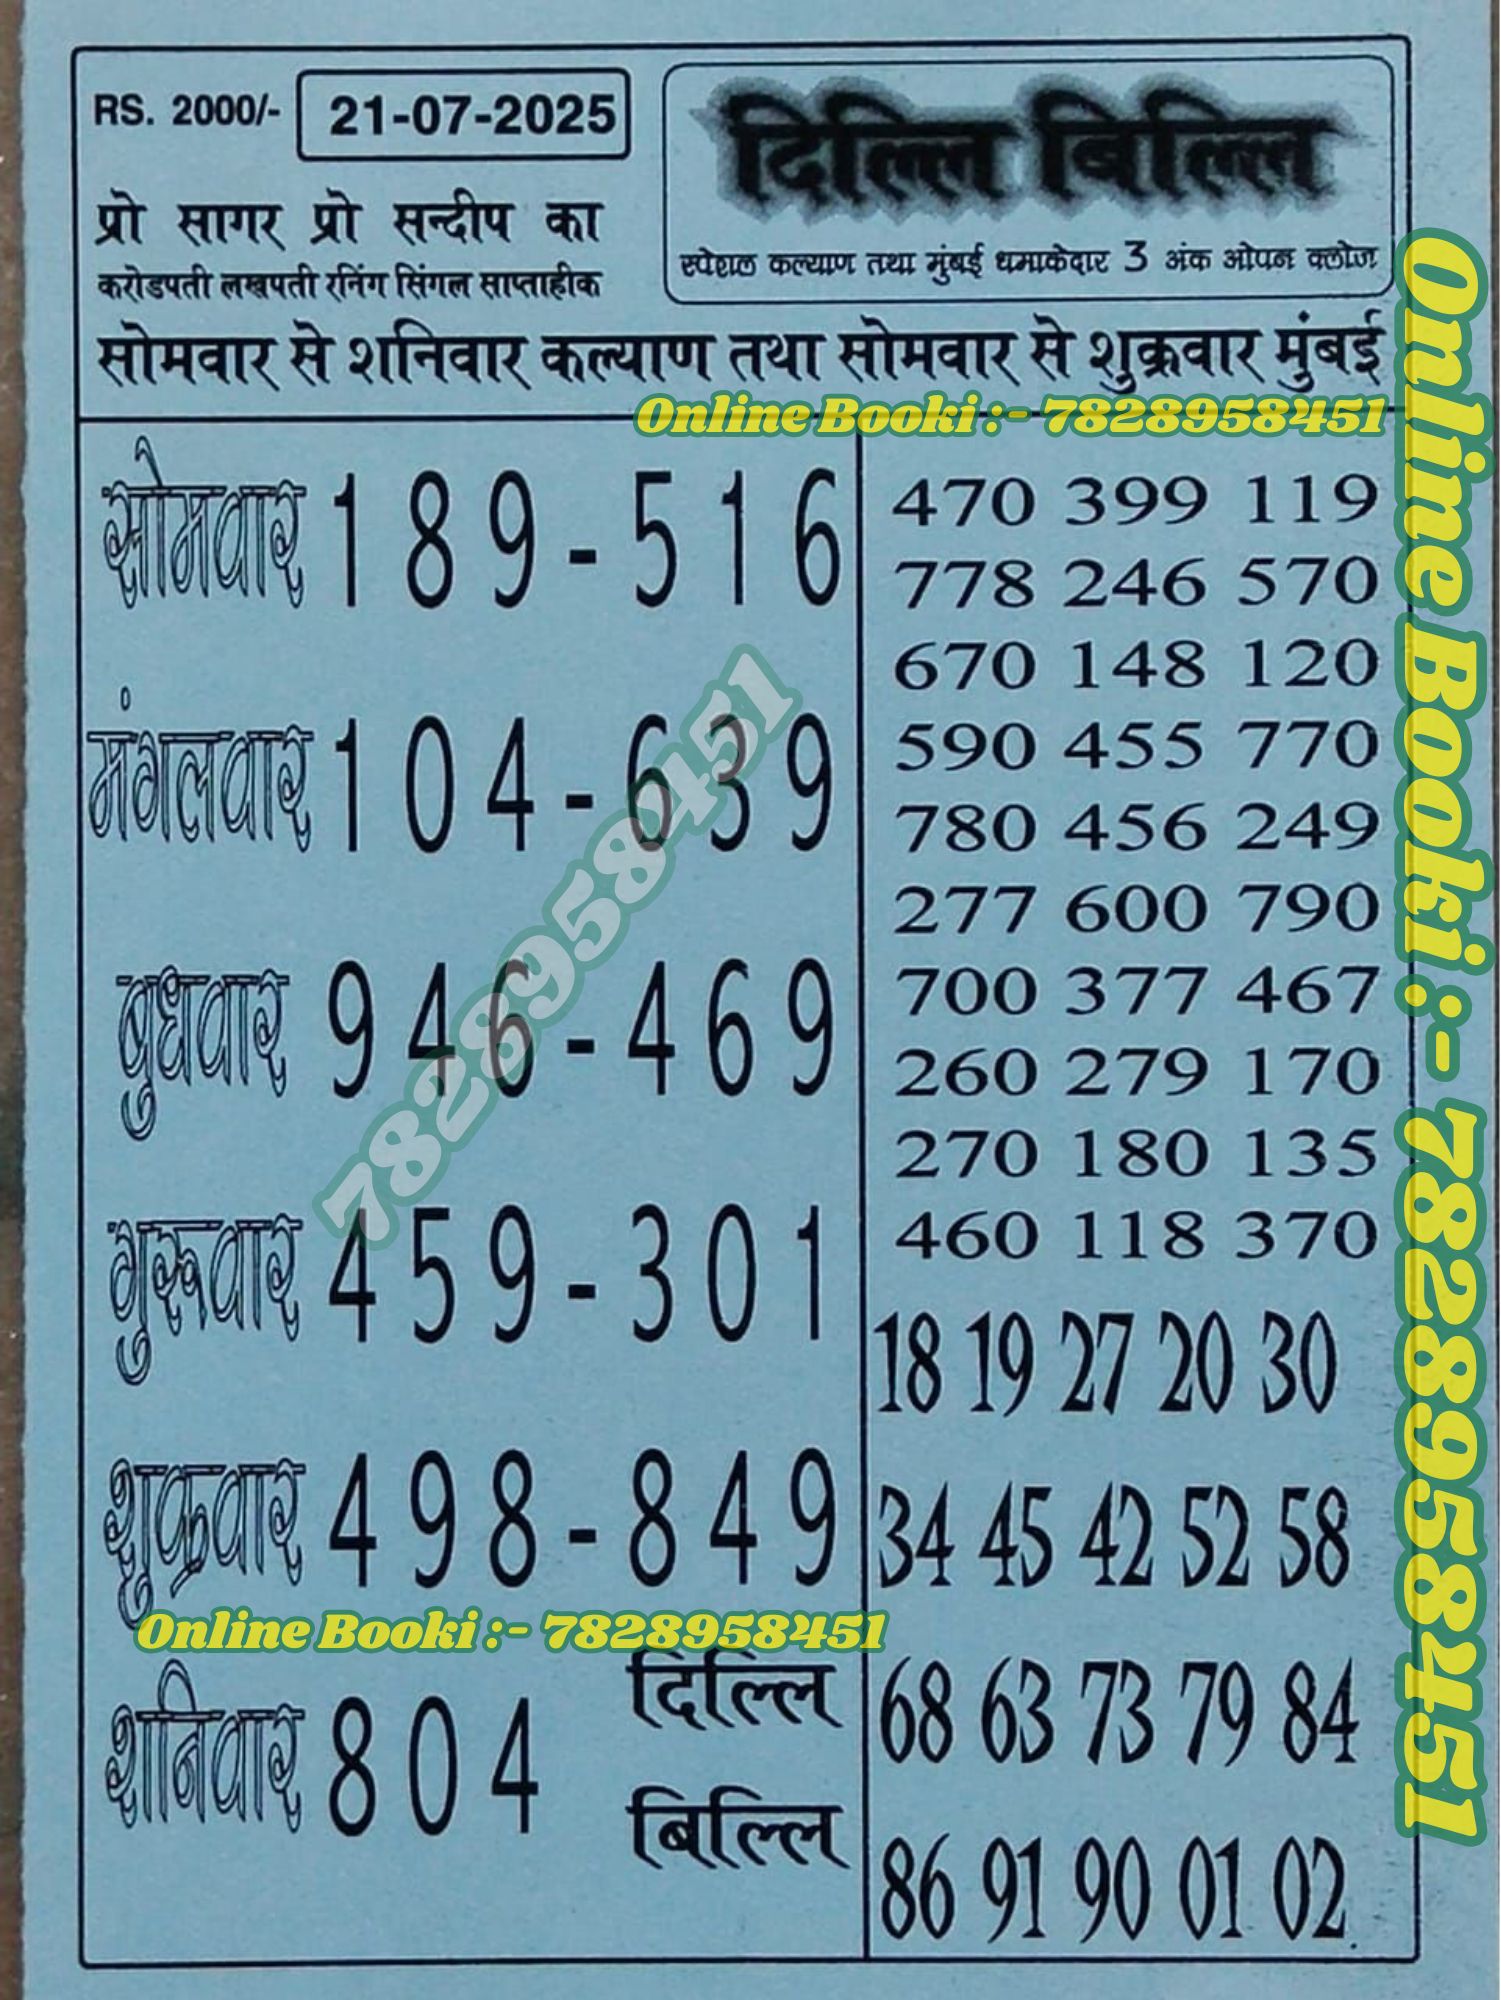 RS. 2000/- 21-07-2025
दिल्लि बिल्लि
प्रो सागर प्रो सन्दीप का
करोडपती लखपती रनिंग सिंगल साप्ताहीक
स्पेशल कल्याण तथा मुंबई धमाकेदार 3 अंक ओपन क्लोज
सोमवार से शनिवार कल्याण तथा सोमवार से शुक्रवार मुंबई
Online Booki :- 7828958451
सोमवार 189-516
मंगलवार 104-639
बुधवार 946-469
गुरूवार 459-301
शुक्रवार 498-849
Online Booki :- 7828958451
शनिवार 804
दिल्लि
बिल्लि
7828958451
470 399 119
778 246 570
670 148 120
590 455 770
780 456 249
277 600 790
700 377 467
260 279 170
270 180 135
460 118 370
18 19 27 20 30
34 45 42 52 58
68 63 73 79 84
86 91 90 01 02
Online Booki :- 7828958451